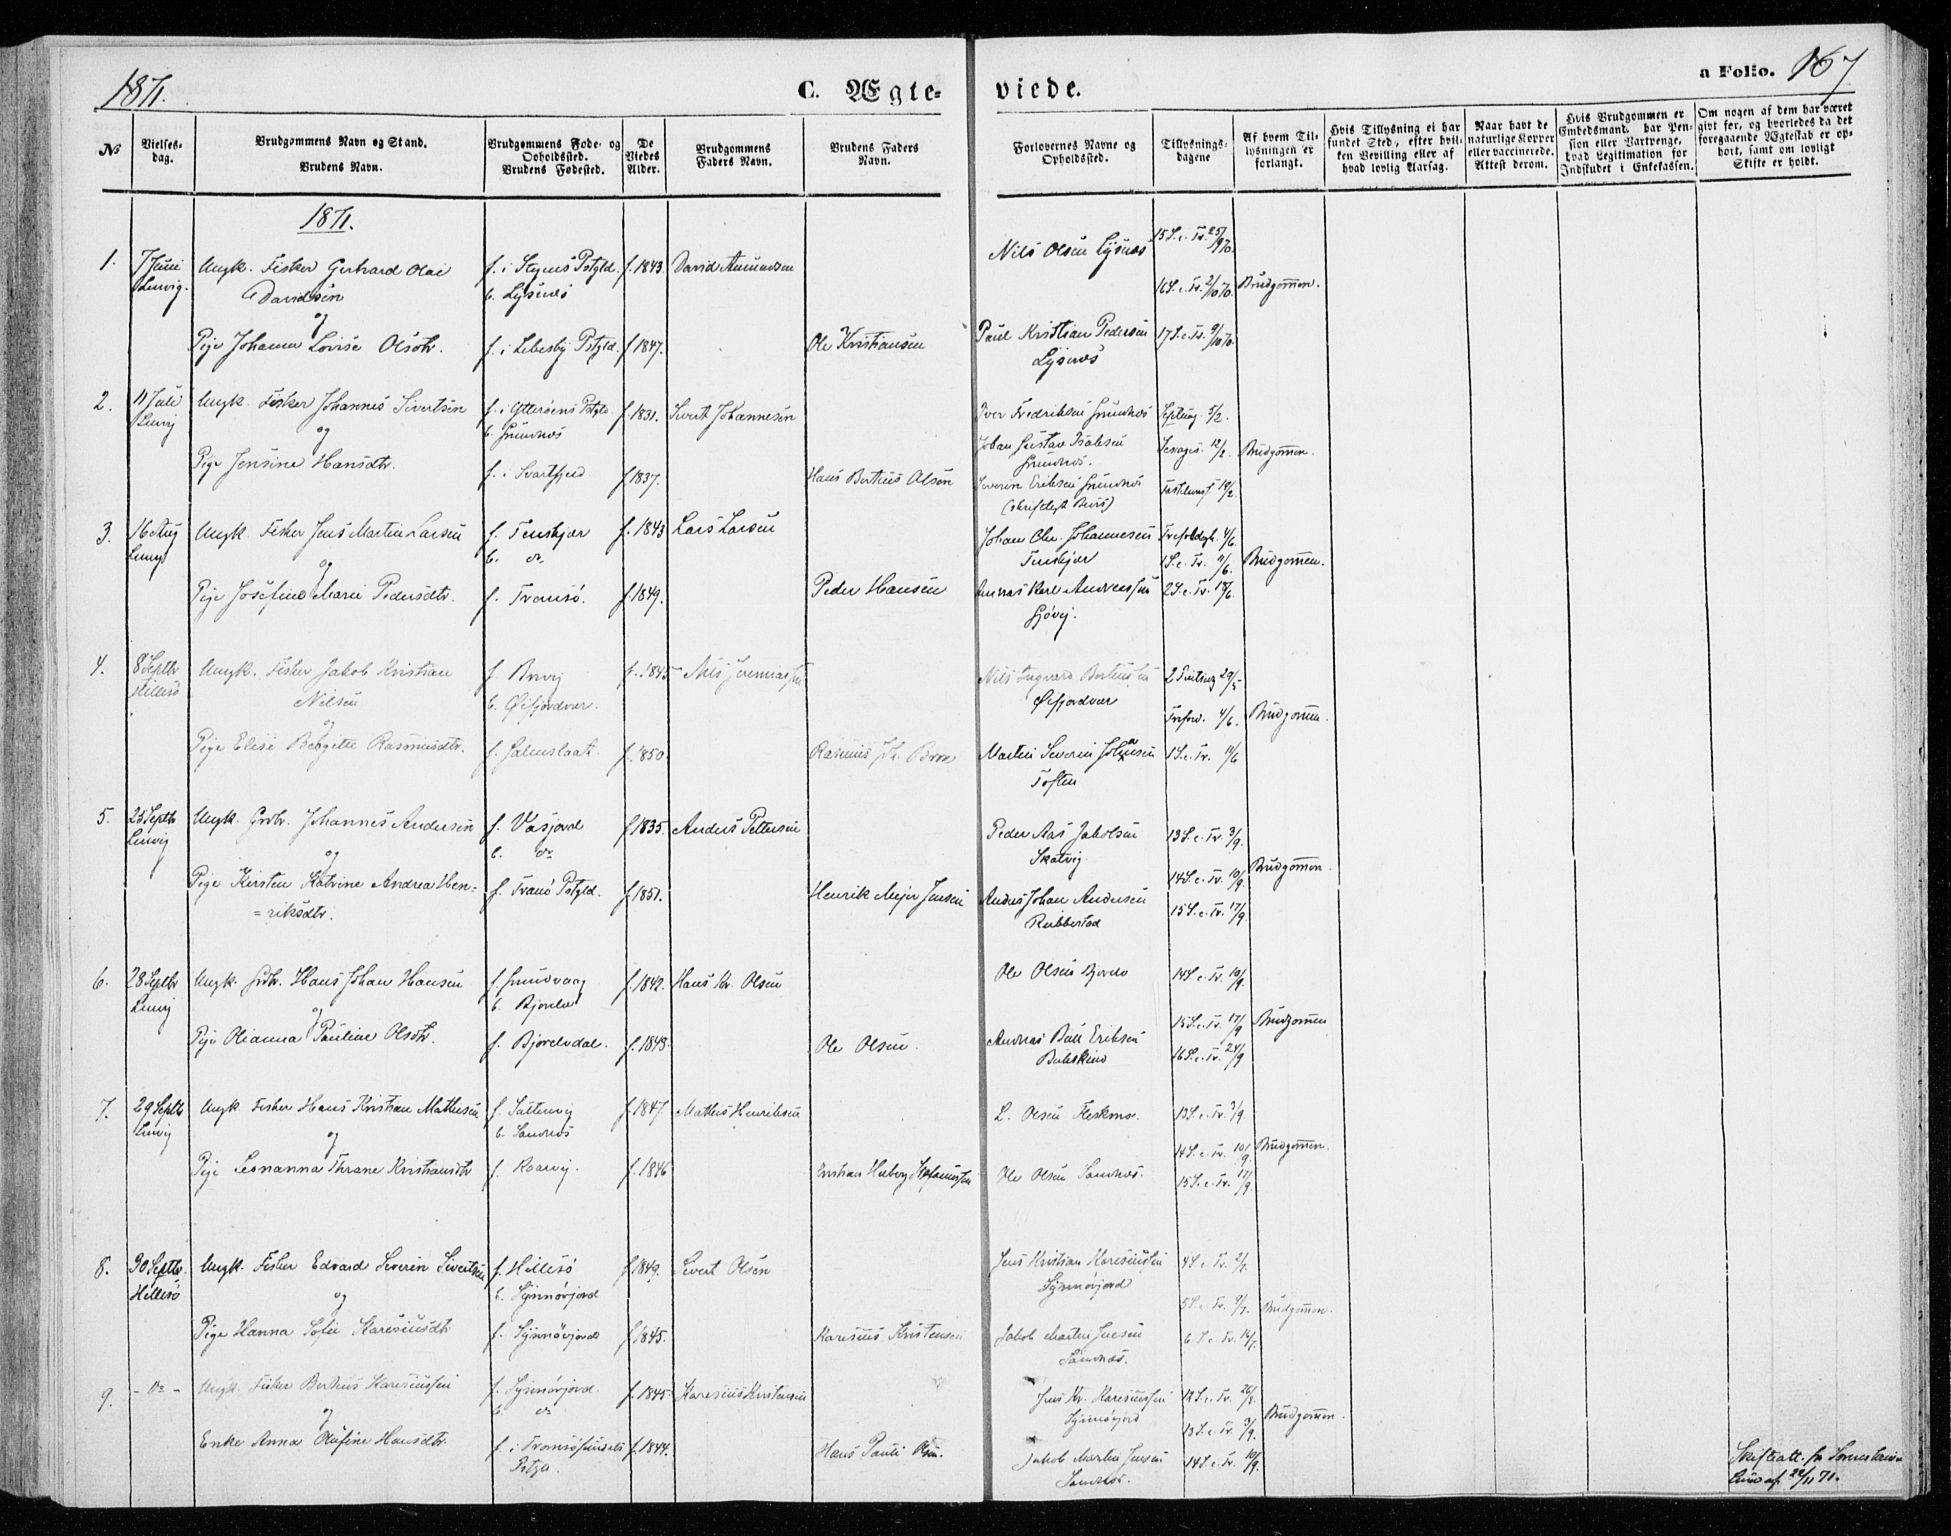 1871.
C. Ægte-
viede.
a Folio. 167
No
Vielses-
dag.
Brudgommens Navn og Stand.
Brudens Navn.
Brudgommens Føde- og
Opholdssted.
Brudens Fødested.
De
Viedes
Alder.
Brudgommens
Faders Navn.
Brudens Faders
Navn.
Forlovernes Navne og
Opholdssted.
Tillysnings-
dagene
Af hvem Til-
lysningen er
forlangt.
Hvis Tillysning ei har
fundet Sted, efter hvil-
ken Bevilling eller af
hvad lovlig Aarsag.
Naar havt de
naturlige Kopper
eller vaccinerede.
Attest derom.
Hvis Brudgommen er
Embedsmand, har Pen-
sion eller Vartpenge,
hvad Legitimation for
Indskudet i Enkekassen.
Om nogen af dem har været
gift før, og hvorledes da det
foregaaende Ægteskab er op-
hørt, samt om lovligt
Skifte er holdt.
1871.
1. 7 Juni Ungk. Fisker Gerhard Olai f. i Stegens Pstgld. f. 1843. David Amundsen Nils Olsen Lysnæs 15 S. e. Tr. 25/9 70.
Lenvig. Davidsen b. Lysnæs 16 S. e. Tr. 2/10 70. Brudgommen.
og
Pige Johanna Lovise Olsdtr. f. i Lebesby Pstgld. f. 1847. Ole Kristiansen Paul Kristian Pedersen 17 S. e. Tr. 9/10 70.
Lysnæs
2. 11 Juli Ungk. Fisker Johannes Sivertsen f. i Ytterøens Pstgld. f. 1831. Sivert Johannesen Iver Fredriksen Grundnæs Septuag. 5/2.
Lenvig og b. Grundnæs Johan Gustav Isaksen Sexages. 12/2. Brudgommen.
Grundnæs.
Pige Jensine Hansdtr. f. i Svartfjeld f. 1837. Hans Bertheus Olsen Severin Eriksen Grundnæs Fastelavns. 19/2.
(skriftligt Bevis)
3. 16 Aug Ungk. Fisker Jens Martin Larsen f. Tenskjær f. 1843 Lars Larsen Johan Chr. Johannesen Trefoldigh. 4/6.
Lenvig b. do Tenskjær 1 S. e. Tr. 11/6. Brudgommen.
og
Pige Josefine Marie Pedersdtr. f. Tromsø. f. 1849. Peder Hansen Andreas Karl Andreassen 2 S. e. Tr. 18/6.
Gjøvig.
4. 8 Septbr Ungk. Fisker Jakob Kristian f. f. 1845 Nils Jeremiassen Nils Ingvard 2 Pintsdag 29/5
Hillesø Nilsen b. Øifjordvær. Øifjordvær Trefold. 4/6. Brudgommen.
og
Pige Elise Bergitte Rasmusdtr. f. f. 1850. Rasmus Martin Severin Johansen 1 S. e. Tr. 11/6
Toften
5. 25 Septbr Ungk. Grdbr. Johannes Andersen f. Vasjord f. 1835. Anders Pettersen Peder Aas Jakobsen 13 S. e. Tr. 3/9.
Lenvig b. do Skatvig
og 14 S. e. Tr. 10/9. Brudgommen.
Pige Kirsten Katrine Andrea Hen- f. Tranø Pstgld. f. 1851. Henrik Mejer Jensen Anders Johan Andersen 15 S. e. Tr. 17/9.
= riksdtr. Rubbestad
6. 28 Septbr Ungk. Grdbr. Hans Johan Hansen f. Grundvaag f. 1842. Hans Kr. Olsen Ole Olsen Bjorelv 14 S. e. Tr. 10/9.
Lenvig b. Bjorelv
og 15 S. e. Tr. 17/9 Brudgommen
Pige Olianna Pauline Olsdtr. f. Bjorelvdal. f. 1848. Ole Olsen. Andreas Eriksen 16 S. e. Tr. 24/9
7. 29 Septbr Ungk. Fisker Hans Kristian Mathisen f. f. 1847. Mathis Henriksen L. Olsen 13 S. e. Tr. 3/9.
Lenvig og b. Sandnæs 14 S. e. Tr. 10/9 Brudgommen.
Pige Leonanna Thrane Kristiansdtr f. f. 1846 Kristian Stefanussen Ole Olsen Sandnæs. 15 S. e. Tr. 17/9.
8. 30 Septbr. Ungk. Fisker Edvard Severin Sivertsen f. Hillesø f. 1849. Sivert Olsen Jens Kristian Karesiussen 4 S. e. Tr. 2/7.
Hillesø og b. Synnøvjord Synnøvjord
5 S. e. Tr. 9/7. Brudgommen.
Pige Hanna Sofie Karesiusdtr f. Synnøvjord f. 1845. Karesius Kristensen Jakob Martin Jensen 6 S. e. Tr. 16/7.
Sandnæs.
9. - do - Ungk. Fisker Bertheus Karesiussen f. Synnøvjord. f. 1845 Karesius Kristensen Jens Kr. Karesiussen 12 S. e. Tr.
og b. do Synnøvjord 13 S. e. Tr. 3/9. Brudgommen.
Enke Anna Olufine Hansdtr. f. i Tromsøsundets f. 1844. Hans Pauli Olsen. Jakob Martin Jensen 14 S. e. Tr. 10/9.
Pstgld. Sandnæs.
Skifteatt. fra
af 22/11 71.